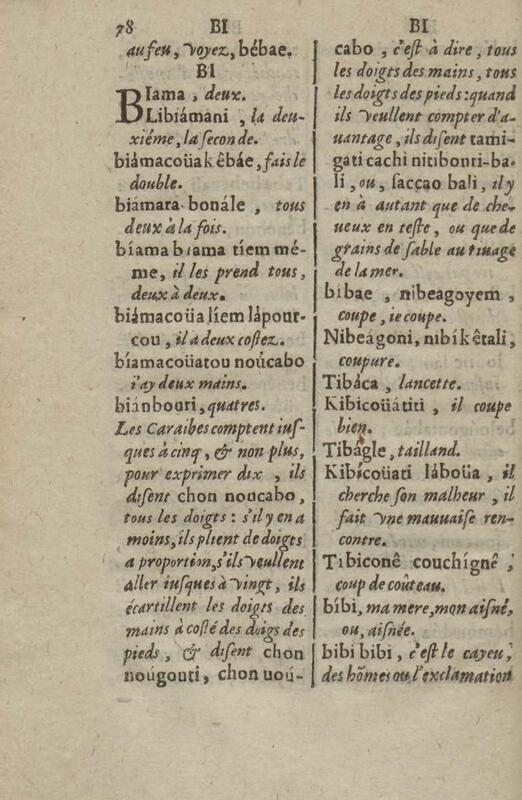 78 BI BI
au feu, voyez, bébae.
BI
BIama, deux.
Libiámani, la deu-
xiéme, la seconde.
biámacoüakêbáe, fais le
double.
biámara bonále, tous
deux à la fois.
bíama bıama tíem mé-
me, il les prend tous,
deux à deux.
biámacoüa líem lápour-
cou, il a deux costez.
bíamacoüatou noúcabo
i'ay deux mains.
biánbouri, quatres.
Les Caraibes comptent ius-
ques à cinq, & non plus,
pour exprimer dix, ils
disent chon noucabo,
tous les doigts : s'il y en a
moins, ils plient de doigts
a proportiõn, s'ils veullent
aller iusques à vingt, ils
écartillent les doigts des
mains à costé des doigs des
pieds, & disent chon
nougouti, chon uoú-
cabo, c'est à dire, tous
les doigts des mains, tous
les doigts des pieds : quand
ils veullent compter d'a-
uantage, ils disent tami-
gati cachi nitibouri-ba-
li, ou, saccao bali, il y
en à autant que de che-
ueux en teste, ou que de
grains de sable au riuage
de la mer.
bíbae, nibeagoyem,
coupe, ie coupe.
Nibeágoni, nibíkêtali,
coupure.
Tibáca, lancette.
Kibicoüátiti, il coupe
bien.
Tibágle, tailland.
Kibícoüati láboüa, il
cherche son malheur, il
fait vne mauuaise ren-
contre.
Tibiconê couchígnê,
coup de coûteau.
bíbi, ma mere, mon aisné,
ou, aisnée.
bibi bibi, c'est le cayeu,
des hõmes ou l'exclamation